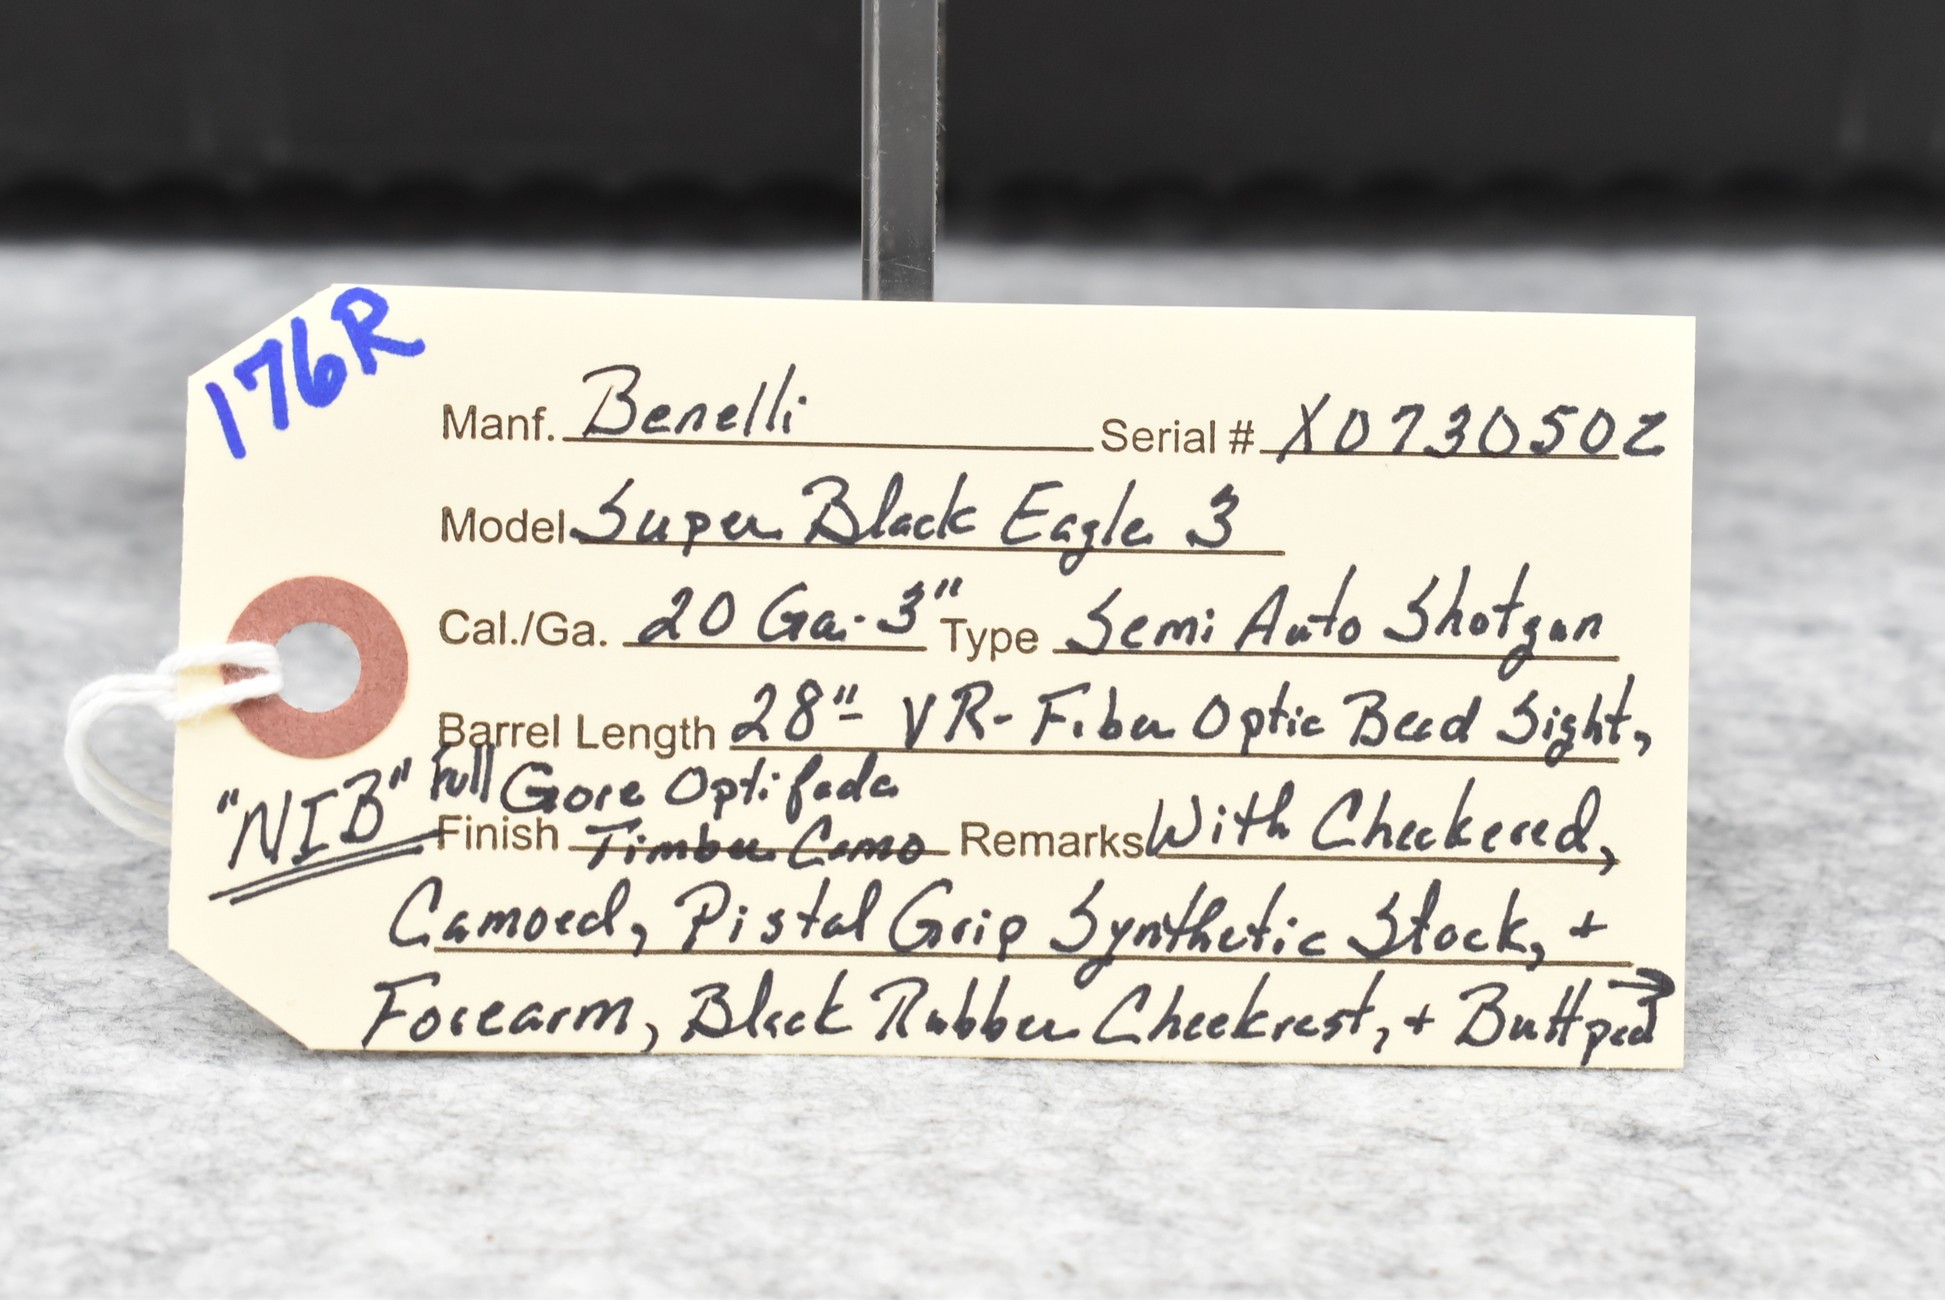 176R
Manf. Benelli Serial # X0730502
Model Super Black Eagle 3
Cal./Ga. 20 Ga.-3" Type Semi Auto Shotgun
Barrel Length 28"- VR- Fiber Optic Bead Sight,
"NIB" Full Gore Optifade
Finish Timber Camo Remarks With Checkered,
Camoed, Pistal Grip Synthetic Stock, +
Forearm, Black Rubber Cheekrest, + Buttpad →